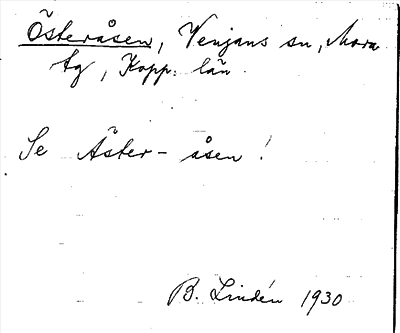 Österåsen, Venjans sn, Mora
tg, Kopp. län
Se Äster-åsen!
B. Lindén 1930